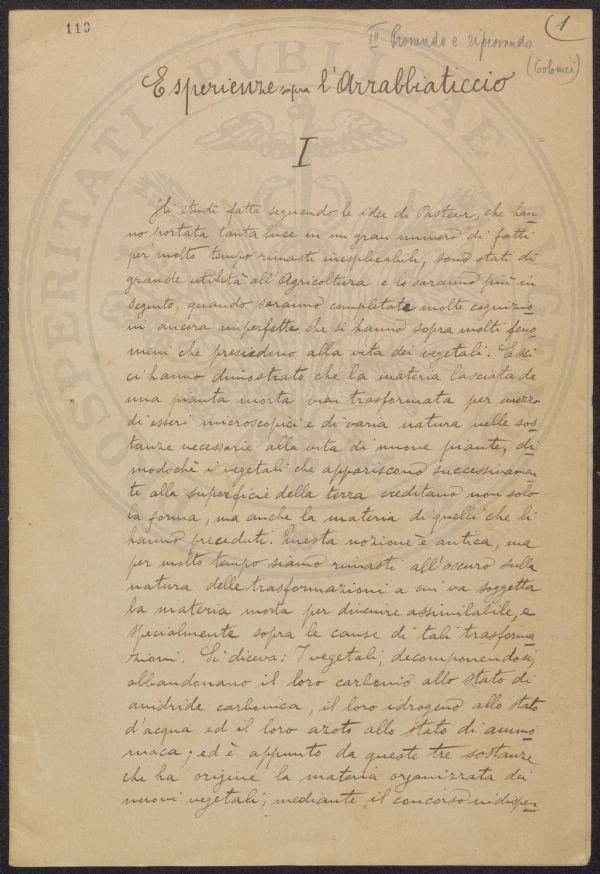 113
1
III Provando e riprovando
(Tolomei)
Esperienze sopra l'Arrabbiaticcio
I
Gli studi fatti seguendo le idee di Pasteur, che han
no portata tanta luce in un gran numero di fatti
per molto tempo rimasti inesplicabili, sono stati di
grande utilità all'Agricoltura e lo saranno più in
seguito, quando saranno completate molte cognizio
ni ancora imperfette che si hanno sopra molti feno
meni che presiedono alla vita dei vegetali. Essi
ci hanno dimostrato che la materia lasciata da
una pianta morta vien trasformata per mezzo
di esseri microscopici e di varia natura nelle sos
tanze necessarie alla vita di nuove piante, di
modochè i vegetali che appariscono successivamen
te alla superficie della terra ereditano non solo
la forma, ma anche la materia di quelli che li
hanno preceduti. Questa nozione è antica, ma
per molto tempo siamo rimasti all'oscuro sulla
natura delle trasformazioni a cui va soggetta
la materia morta per divenire assimilabile, e
specialmente sopra le cause di tali trasforma
zioni. Si diceva: I vegetali, decomponendosi,
abbandonano il loro carbonio allo stato di
anidride carbonica, il loro idrogeno allo stato
d'acqua ed il loro azoto allo stato di ammo
niaca; ed è appunto da queste tre sostanze
che ha origine la materia organizzata dei
nuovi vegetali, mediante il concorso indispen
PROSPERITATI PVBLICAE